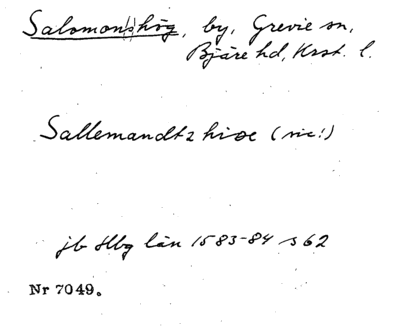 Salomonshög, by, Grevie sn,
Bjäre hd, Krst. l.
Sallemandtz hiøe (sic!)
jb Hbg län 1583-84 s 62
Nr 7049.